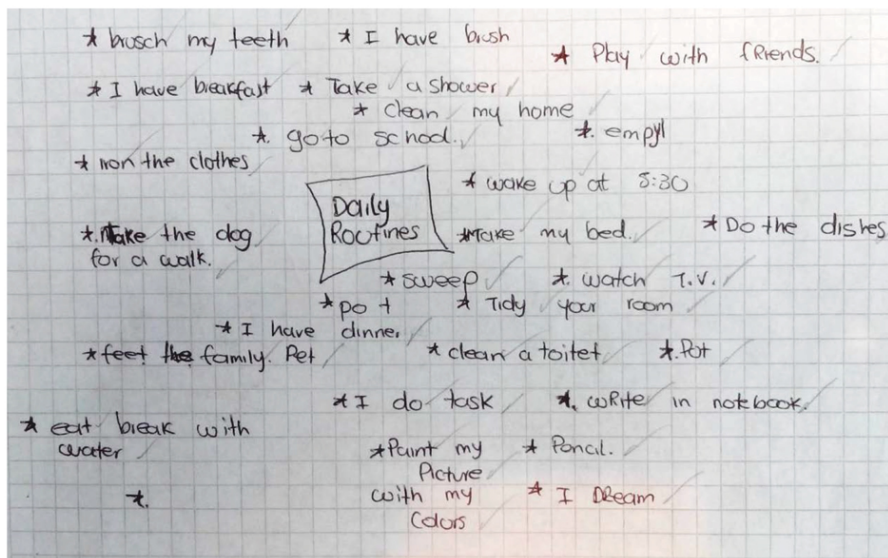 * brusch my teeth
* I have brush
* Play with fRiends.
* I have breakfast
* Take a shower
* clean my home
*. go to school.
*. empyl
* iron the clothes
* wake up at 5:30
Daily
Routines
*. Take the dog
for a walk.
*Make my bed.
*Do the dishes
*sweep
*. watch T.V.
*po t
* Tidy your room
*I have dinner
*feet the family. Pet
*clean a toitet
*.Pot
*I do task
*. wRite in notebook.
* eat break with
water
*Paint my
Picture
with my
Colors
* Poncil.
* I DReam
*.